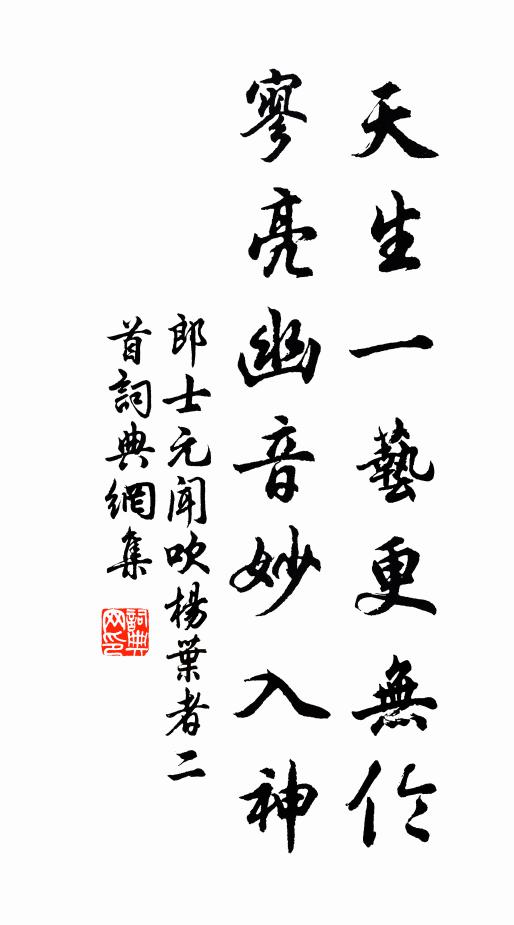 天生一藝更無倫
寥亮幽音妙入神
郎士元聞吹楊葉者二
首詞典網集
詞典網印